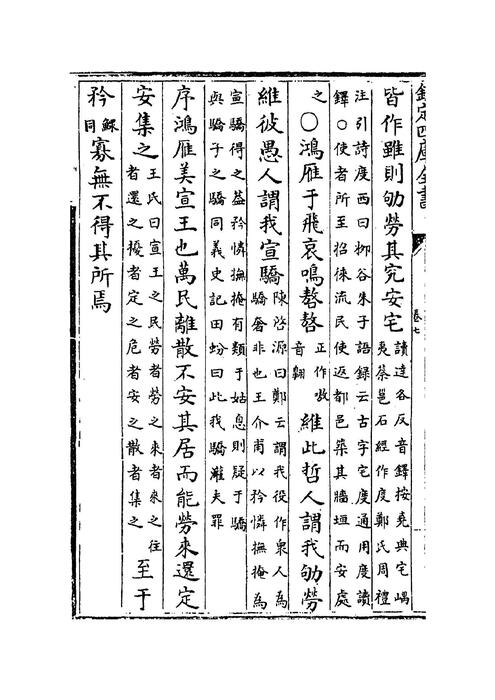 欽定四庫全書
卷七
皆作雖則劬勞其究安宅讀達各反音鐸按堯典宅嵎
夷蔡邕石經作度鄭氏周禮
注引詩度西曰栁谷朱子語録云古字宅度通用度讀
鐸○使者所至招徠流民使返都邑築其牆垣而安處
之○鴻雁于飛哀鳴嗸嗸正作嗷音翺維此哲人謂我劬勞
維彼愚人謂我宣驕陳啓源曰鄭云謂我役作衆人為
驕奢非也王介甫以矜憐撫掩為
宣驕得之葢矜憐撫掩有類于姑息則疑于驕
與驕子之驕同義史記田蚡曰此我驕灌夫罪
序鴻雁美宣王也萬民離散不安其居而能勞來還定
安集之王氏曰宣王之民勞者勞之來者來之往
者還之擾者定之危者安之散者集之至于
矜鰥同寡無不得其所焉